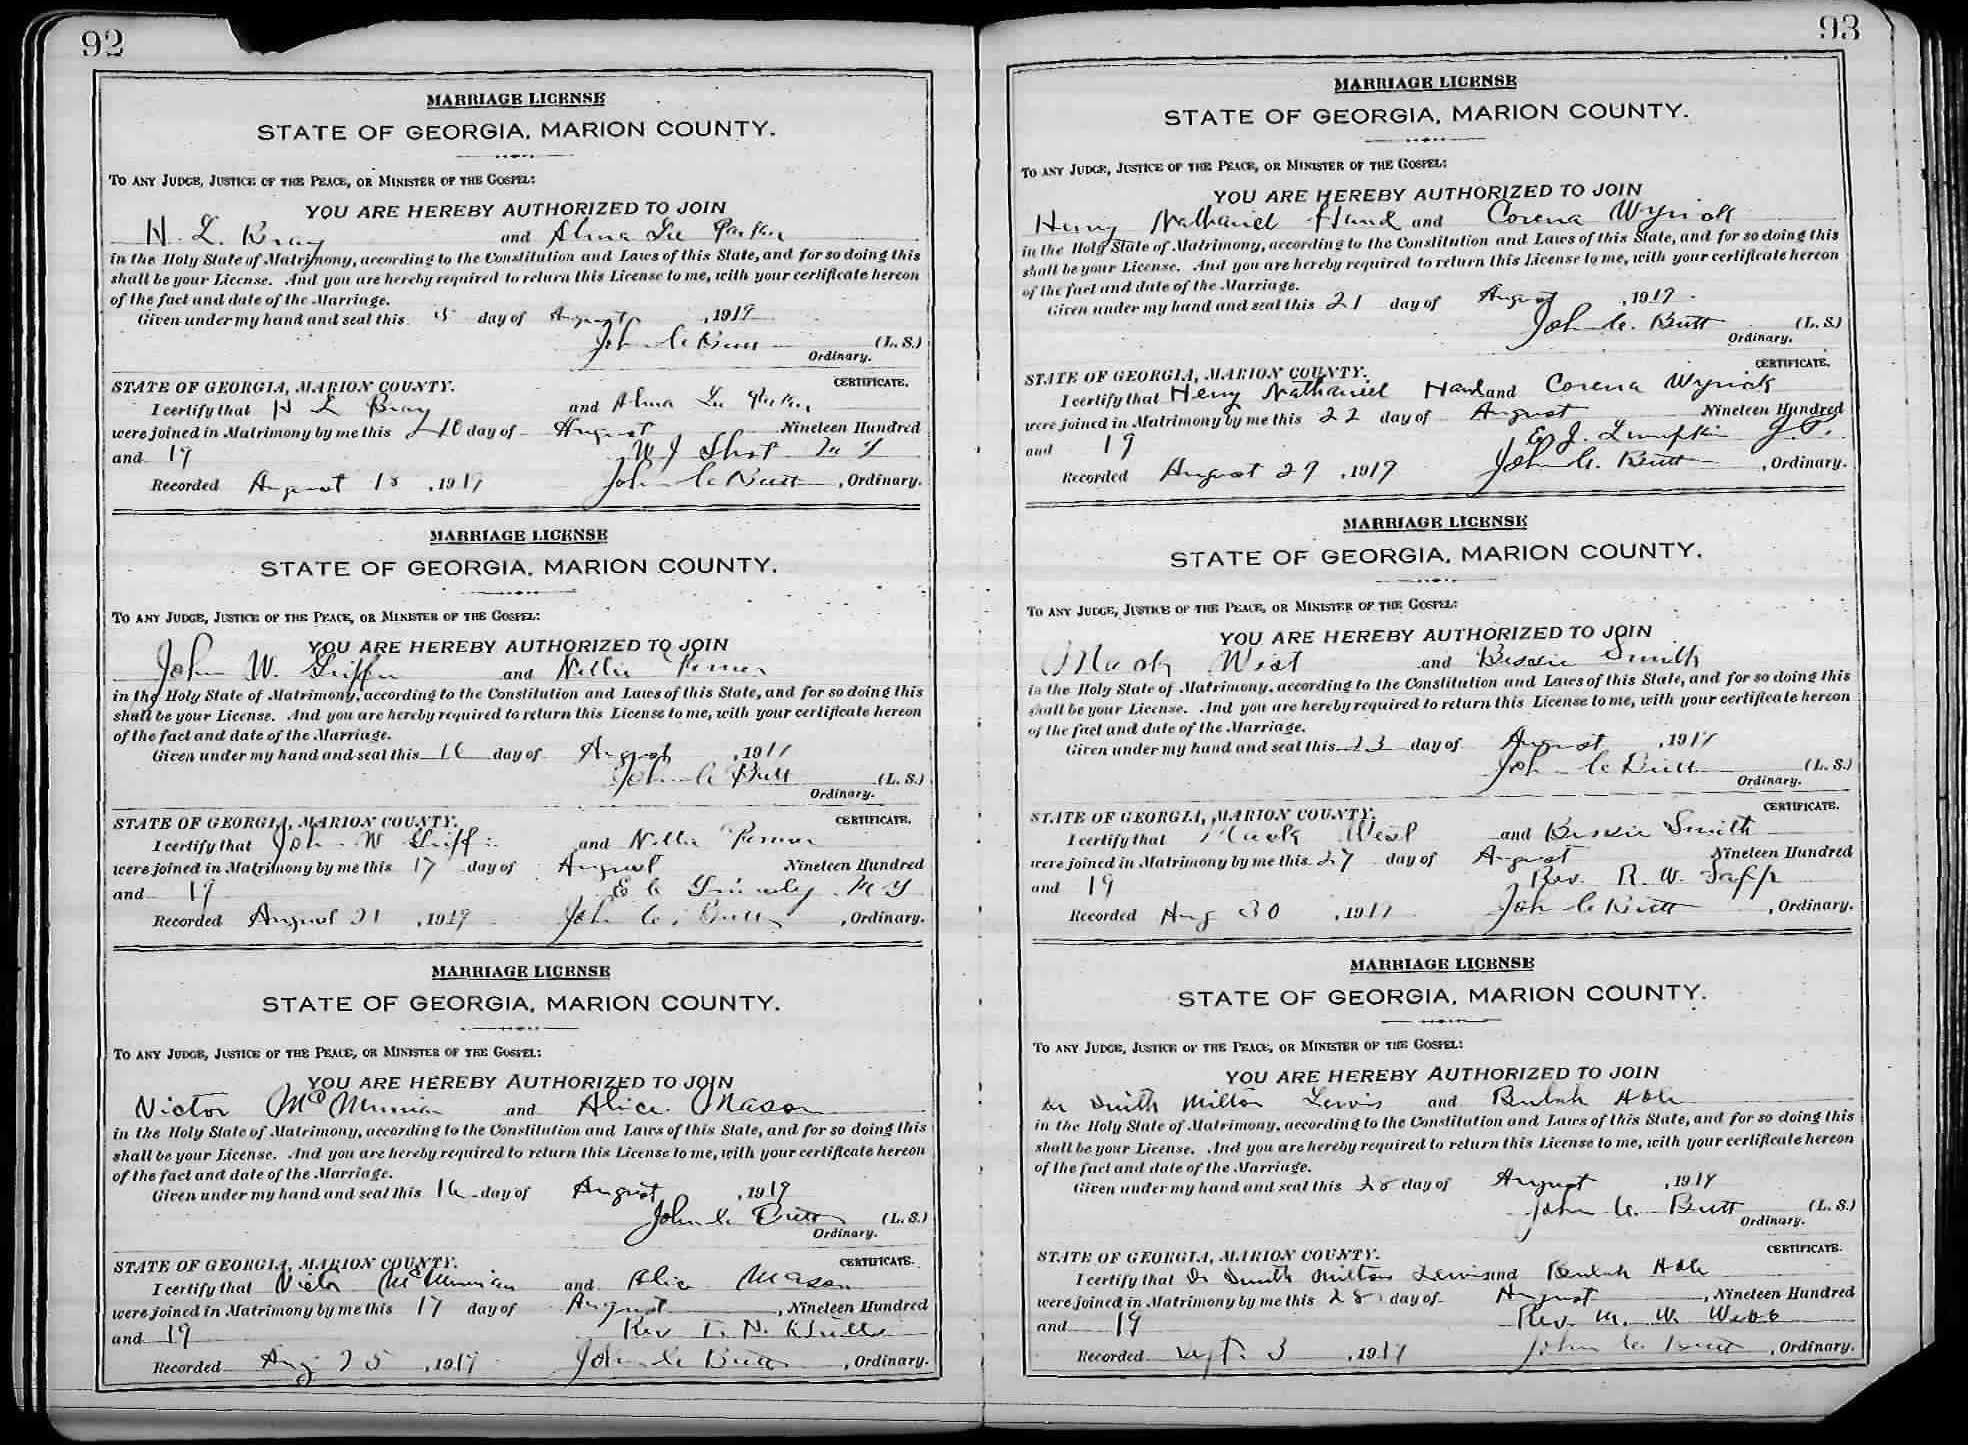 92
MARRIAGE LICENSE
STATE OF GEORGIA, MARION COUNTY.
TO ANY JUDGE, JUSTICE OF THE PEACE, OR MINISTER OF THE GOSPEL:
YOU ARE HEREBY AUTHORIZED TO JOIN
H. L. Bray and Alma Lee Parker
in the Holy State of Matrimony, according to the Constitution and Laws of this State, and for so doing this
shall be your License. And you are hereby required to return this License to me, with your certificate hereon
of the fact and date of the Marriage.
Given under my hand and seal this day of August, 1919
John C Butt (L. S.)
Ordinary.
CERTIFICATE.
STATE OF GEORGIA, MARION COUNTY.
I certify that H L Bray and Alma Lee Parker
were joined in Matrimony by me this 10 day of August Nineteen Hundred
and 19 W J
Recorded August 18, 1919 John C Butt, Ordinary.
MARRIAGE LICENSE
STATE OF GEORGIA, MARION COUNTY.
TO ANY JUDGE, JUSTICE OF THE PEACE, OR MINISTER OF THE GOSPEL:
YOU ARE HEREBY AUTHORIZED TO JOIN
John W. Griffin and Nellie
in the Holy State of Matrimony, according to the Constitution and Laws of this State, and for so doing this
shall be your License. And you are hereby required to return this License to me, with your certificate hereon
of the fact and date of the Marriage.
Given under my hand and seal this 16 day of August, 1919
John C Butt (L. S.)
Ordinary.
CERTIFICATE.
STATE OF GEORGIA, MARION COUNTY.
I certify that John W Griffin and Nellie
were joined in Matrimony by me this 17 day of August Nineteen Hundred
and 19 E C
Recorded August 21, 1919 John C. Butt, Ordinary.
MARRIAGE LICENSE
STATE OF GEORGIA, MARION COUNTY.
TO ANY JUDGE, JUSTICE OF THE PEACE, OR MINISTER OF THE GOSPEL:
YOU ARE HEREBY AUTHORIZED TO JOIN
Victor McMurrian and Alice Mason
in the Holy State of Matrimony, according to the Constitution and Laws of this State, and for so doing this
shall be your License. And you are hereby required to return this License to me, with your certificate hereon
of the fact and date of the Marriage.
Given under my hand and seal this 16 day of August, 1919
John C. Butt (L. S.)
Ordinary.
CERTIFICATE.
STATE OF GEORGIA, MARION COUNTY.
I certify that Victor McMurrian and Alice Mason
were joined in Matrimony by me this 17 day of August, Nineteen Hundred
and 19 Rev T. N.
Recorded Aug 25, 1919 John C Butt, Ordinary.
93
MARRIAGE LICENSE
STATE OF GEORGIA, MARION COUNTY.
TO ANY JUDGE, JUSTICE OF THE PEACE, OR MINISTER OF THE GOSPEL:
YOU ARE HEREBY AUTHORIZED TO JOIN
Henry Nathaniel Hand and Corena Wynick
in the Holy State of Matrimony, according to the Constitution and Laws of this State, and for so doing this
shall be your License. And you are hereby required to return this License to me, with your certificate hereon
of the fact and date of the Marriage.
Given under my hand and seal this 21 day of August, 1919
John C. Butt (L. S.)
Ordinary.
CERTIFICATE.
STATE OF GEORGIA, MARION COUNTY.
I certify that Henry Nathaniel Hand and Corena Wynick
were joined in Matrimony by me this 22 day of August Nineteen Hundred
and 19 E. J. Lumpkin J.P.
Recorded August 27, 1919 John C. Butt, Ordinary.
MARRIAGE LICENSE
STATE OF GEORGIA, MARION COUNTY.
TO ANY JUDGE, JUSTICE OF THE PEACE, OR MINISTER OF THE GOSPEL:
YOU ARE HEREBY AUTHORIZED TO JOIN
Mack West and Bessie Smith
in the Holy State of Matrimony, according to the Constitution and Laws of this State, and for so doing this
shall be your License. And you are hereby required to return this License to me, with your certificate hereon
of the fact and date of the Marriage.
Given under my hand and seal this 23 day of August, 1919
John C Butt (L. S.)
Ordinary.
CERTIFICATE.
STATE OF GEORGIA, MARION COUNTY.
I certify that Mack West and Bessie Smith
were joined in Matrimony by me this 27 day of August Nineteen Hundred
and 19 Rev. R. W.
Recorded Aug 30, 1919 John C Butt, Ordinary.
MARRIAGE LICENSE
STATE OF GEORGIA, MARION COUNTY.
TO ANY JUDGE, JUSTICE OF THE PEACE, OR MINISTER OF THE GOSPEL:
YOU ARE HEREBY AUTHORIZED TO JOIN
Dr Smith Milton Lewis and Beulah Hale
in the Holy State of Matrimony, according to the Constitution and Laws of this State, and for so doing this
shall be your License. And you are hereby required to return this License to me, with your certificate hereon
of the fact and date of the Marriage.
Given under my hand and seal this 28 day of August, 1919
John C. Butt (L. S.)
Ordinary.
CERTIFICATE.
STATE OF GEORGIA, MARION COUNTY.
I certify that Dr Smith Milton Lewis and Beulah Hale
were joined in Matrimony by me this 28 day of August, Nineteen Hundred
and 19 Rev. M. W. Webb
Recorded Sept. 3, 1919 John C. Butt, Ordinary.